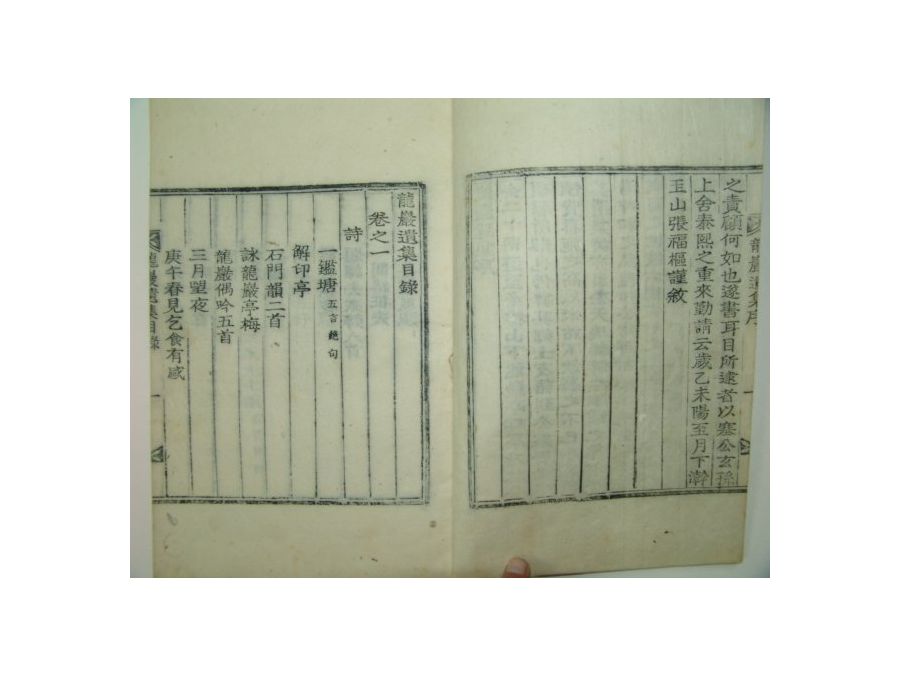 之責顧何如也遂書耳目所逮者以塞公玄孫
上舍泰熙之重來勤請云歲乙未陽至月下澣
玉山張福樞謹敘
龍巖遺集序
一
龍巖遺集目錄
卷之一
詩
一鑑塘 五言絶句
解印亭
石門韻二首
詠龍巖亭梅
龍巖偶吟五首
三月望夜
庚午春見乞食有感
龍巖遺集目錄
一